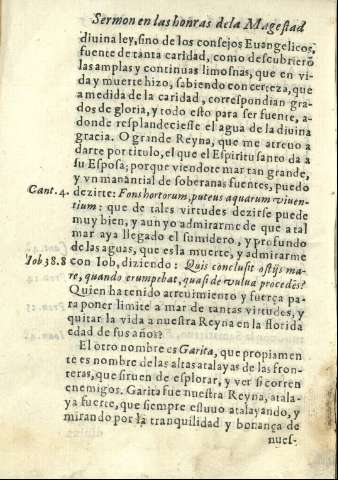 Sermon en las honras dela Magestad
diuina ley, sino de los consejos Euangelicos,
fuente de tanta caridad, como descubrierõ
las amplas y continuas limosnas, que en vi-
da y muerte hizo, sabiendo con certeza, que
a medida de la caridad, correspondian gra-
dos de gloria, y todo esto para ser fuente, a-
donde resplandeciesse el agua de la diuina
gracia. O grande Reyna, que me atreuo a
darte por titulo, el que el Espiritu santo da a
su Esposa; porque viendote mar tan grande,
y vn manãtial de soberanas fuentes, puedo
Cant. 4. dezirte: Fons hortorum, puteus aquarum viuen-
tium: que de tales virtudes dezirse puede
muy bien, y aun yo admirarme de que a tal
mar aya llegado el sumidero, y profundo
de las aguas, que es la muerte, y admirarme
Iob 38.8 con Iob, diziendo: Quis conclusit ostijs ma-
re, quando erumpebat, quasi de vulua procedẽs?
Quien ha tenido atreuimiento y fuerça pa-
ra poner limite a mar de tantas virtudes, y
quitar la vida a nuestra Reyna en la florida
edad de sus años?
El otro nombre es Garita, que propiamen
te es nombre de las altas atalayas de las fron-
teras, que siruen de esplorar, y ver si corren
enemigos. Garita fue nuestra Reyna, atala-
ya fuerte, que siempre estuuo atalayando, y
mirando por la tranquilidad y bonança de
nues-